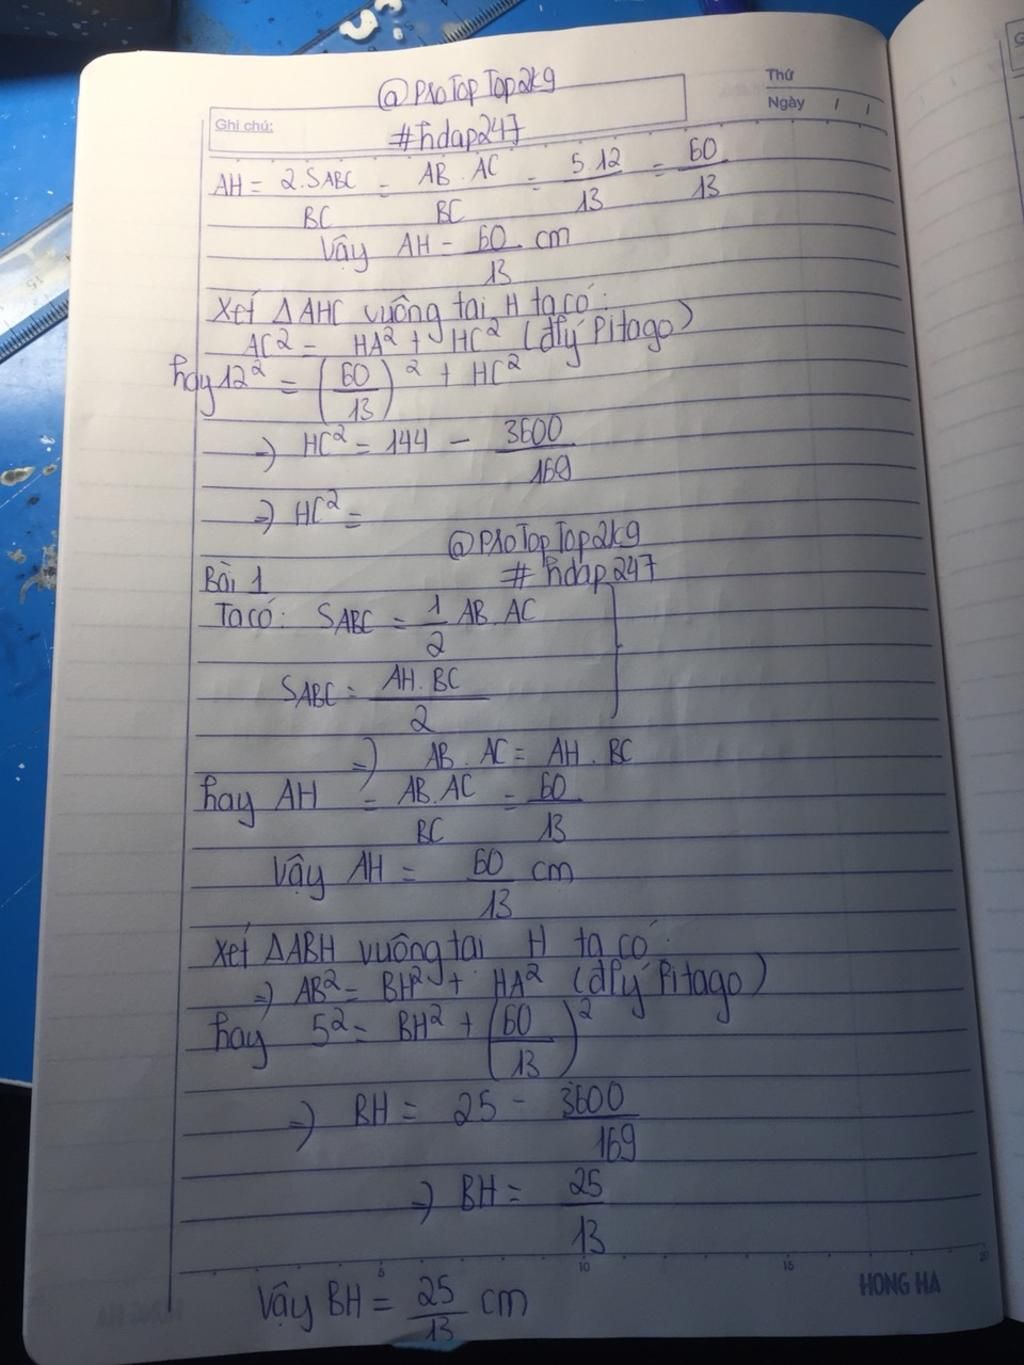 @ProTopTop2k9
Thứ
Ngày / /
Ghi chú:
#hdap247
AH = 2.SABC/BC = AB.AC/BC = 5.12/13 = 60/13
Vậy AH = 60/13 cm
Xét ΔAHC vuông tại H ta có:
AC² = HA² + HC² (đlý Pitago)
hay 12² = (60/13)² + HC²
=> HC² = 144 - 3600/169
=> HC² =
@ProTopTop2k9
Bài 1 # hdap247
Ta có: SABC = 1/2 AB.AC
SABC = AH.BC/2
=> AB.AC = AH.BC
hay AH = AB.AC/BC = 60/13
Vậy AH = 60/13 cm
Xét ΔABH vuông tại H ta có:
=> AB² = BH² + HA² (đlý Pitago)
hay 5² = BH² + (60/13)²
=> BH = 25 - 3600/169
=> BH = 25/13
5 10 15 20
HONG HA
Vậy BH = 25/13 cm